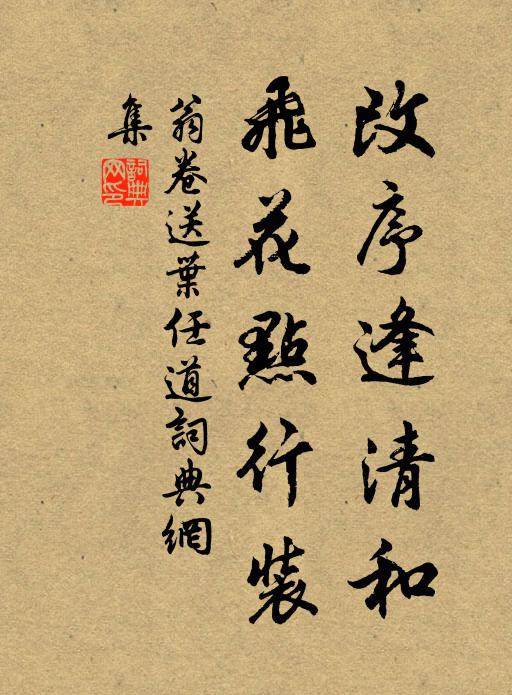 改序逢清和
飛花點行裝
翁卷送葉任道詞典網
集
詞典
网印